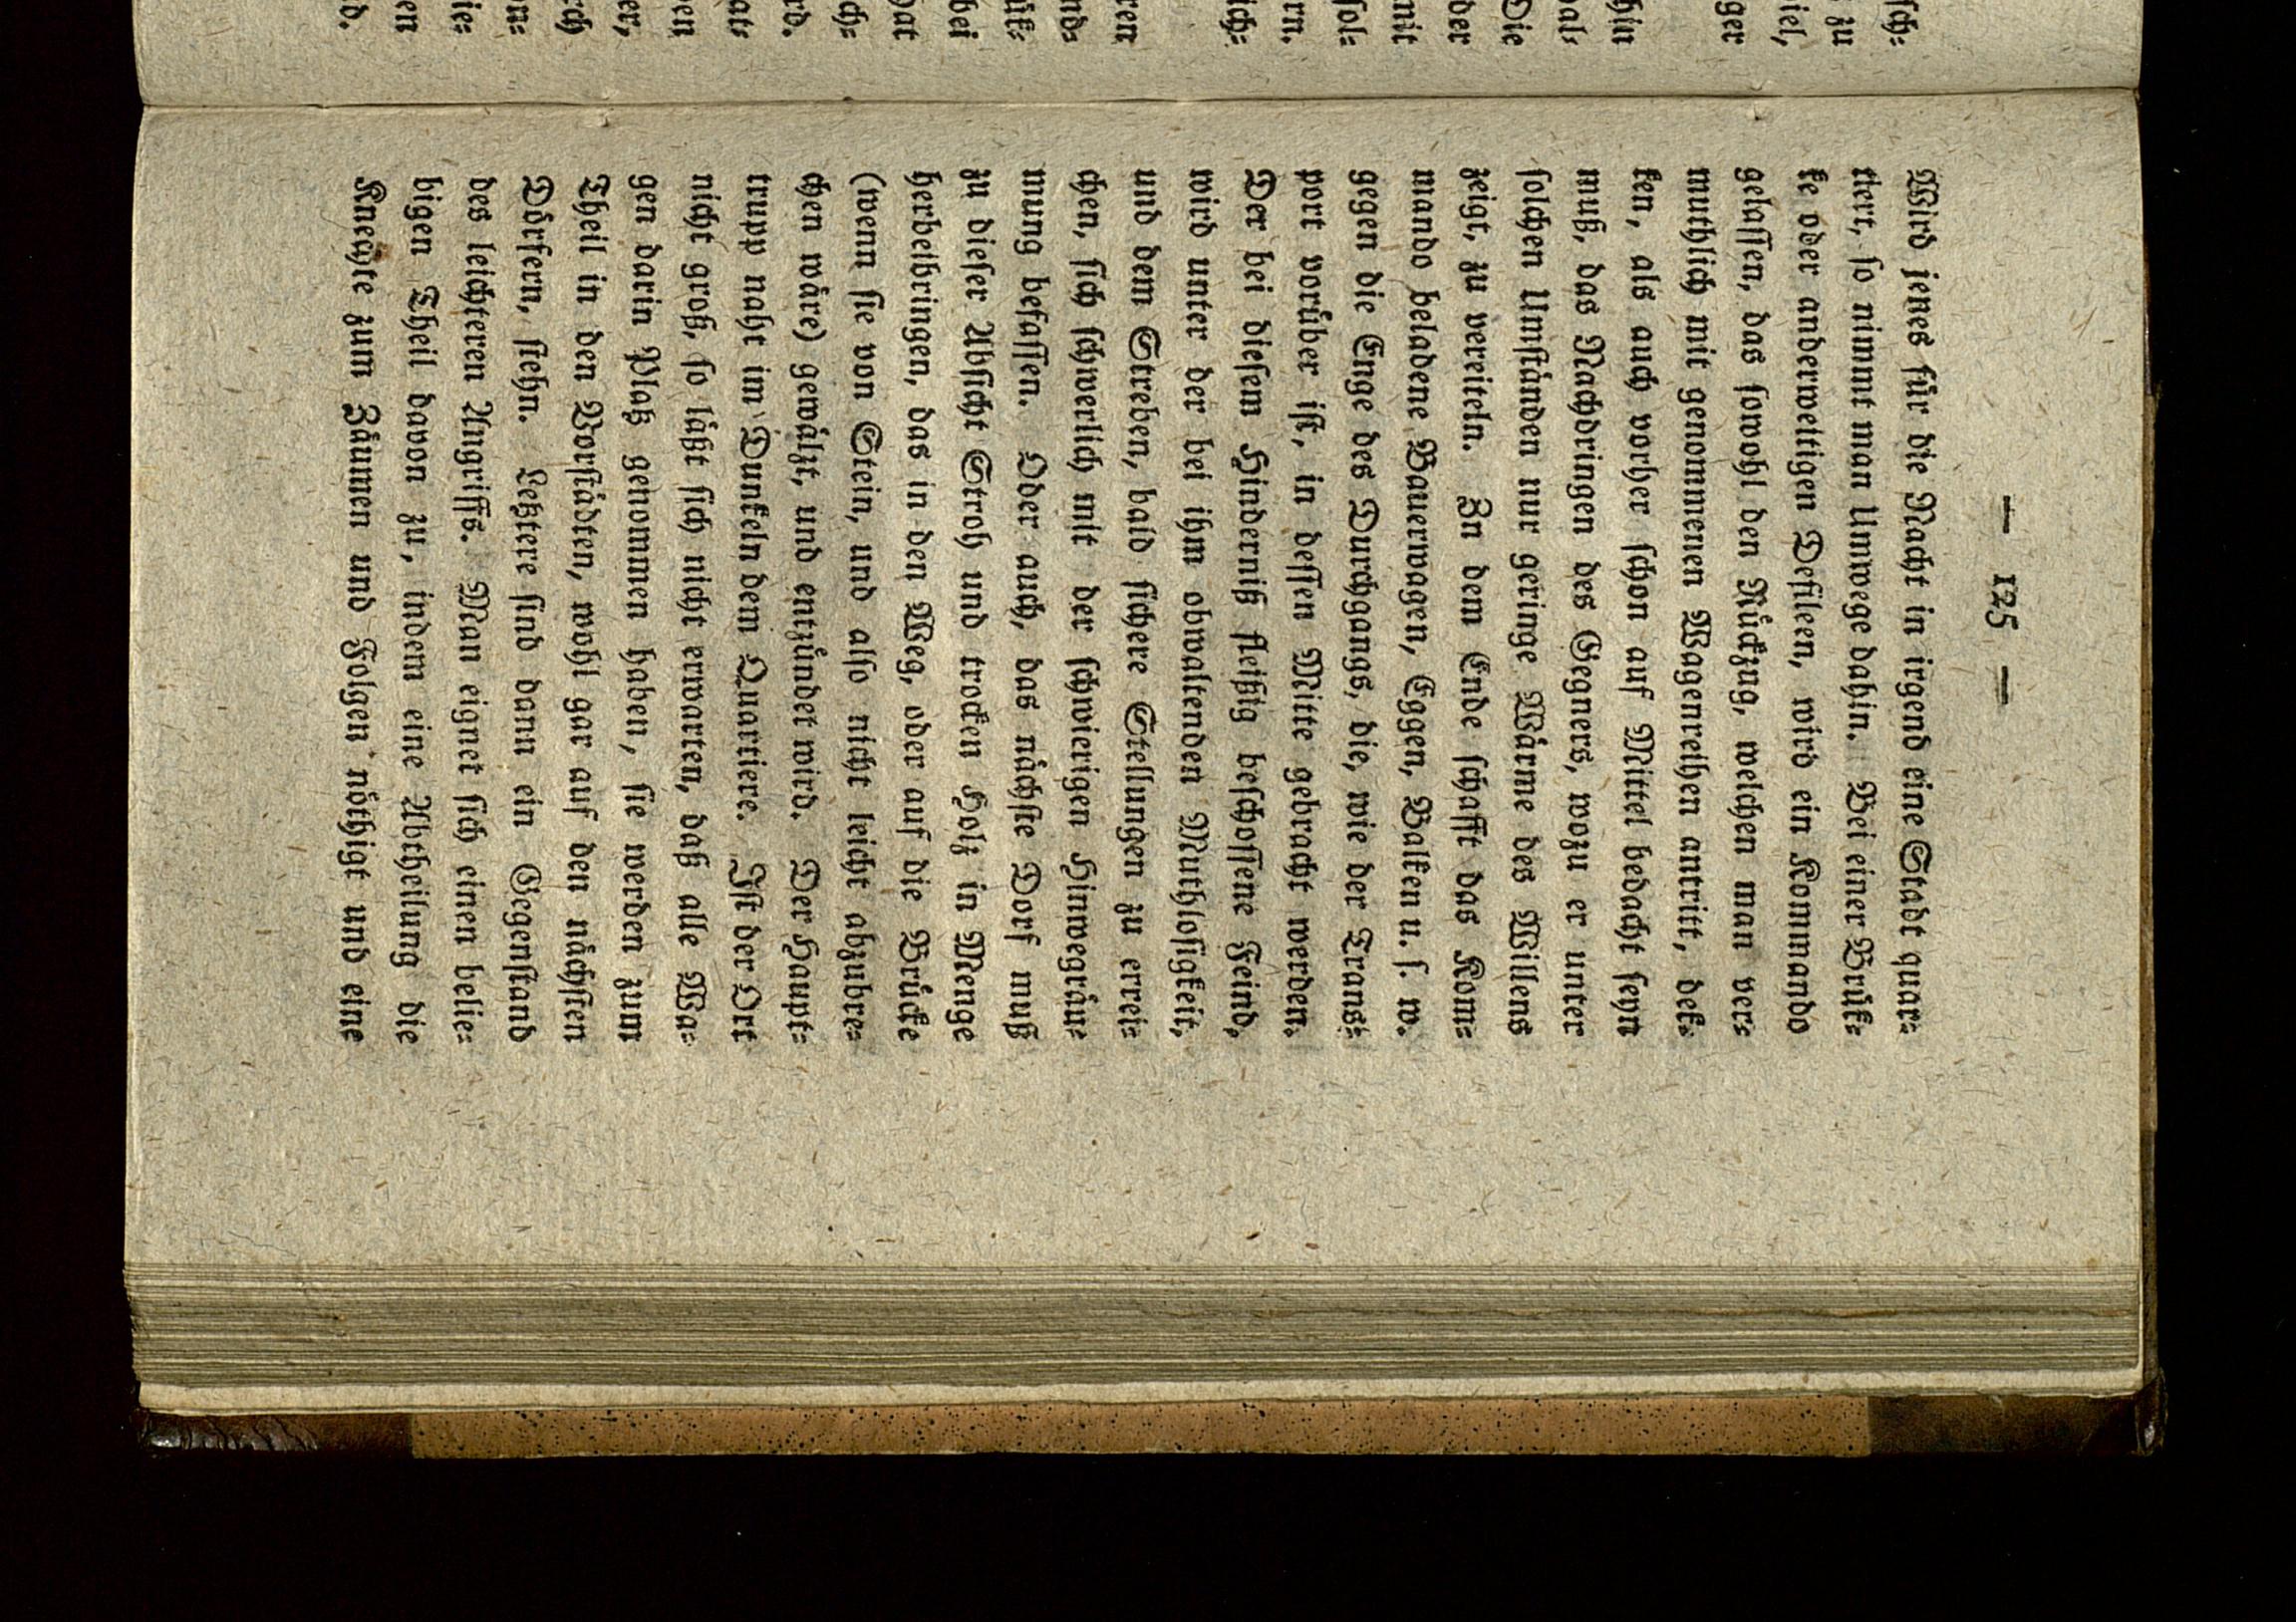 — 125 —
Wird jenes für die Nacht in irgend eine Stadt quar⸗
tiert, so nimmt man Umwege dahin. Bei einer Brük⸗
ke oder anderweitigen Defileen, wird ein Kommando
gelassen, das sowohl den Rückzug, welchen man ver⸗
muthlich mit genommenen Wagenreihen antritt, dek⸗
ken, als auch vorher schon auf Mittel bedacht seyn
muß, das Nachdringen des Gegners, wozu er unter
solchen Umständen nur geringe Wärme des Willens
zeigt, zu vereiteln. Zu dem Ende schafft das Kom⸗
mando beladene Bauerwagen, Eggen, Balken u. s. w.
gegen die Enge des Durchgangs, die, wie der Trans⸗
port vorüber ist, in dessen Mitte gebracht werden.
Der bei diesem Hinderniß fleißig beschossene Feind,
wird unter der bei ihm obwaltenden Muthlosigkeit,
und dem Streben, bald sichere Stellungen zu errei⸗
chen, sich schwerlich mit der schwierigen Hinwegräu⸗
mung befassen. Oder auch, das nächste Dorf muß
zu dieser Absicht Stroh und trocken Holz in Menge
herbeibringen, das in den Weg, oder auf die Brücke
(wenn sie von Stein, und also nicht leicht abzubre⸗
chen wäre) gewälzt, und entzündet wird. Der Haupt⸗
trupp naht im Dunkeln dem Quartiere. Ist der Ort
nicht groß, so läßt sich nicht erwarten, daß alle Wa⸗
gen darin Platz genommen haben, sie werden zum
Theil in den Vorstädten, wohl gar auf den nächsten
Dörfern, stehn. Letztere sind dann ein Gegenstand
des leichteren Angriffs. Man eignet sich einen belie⸗
bigen Theil davon zu, indem eine Abtheilung die
Knechte zum Zäumen und Folgen nöthigt und eine